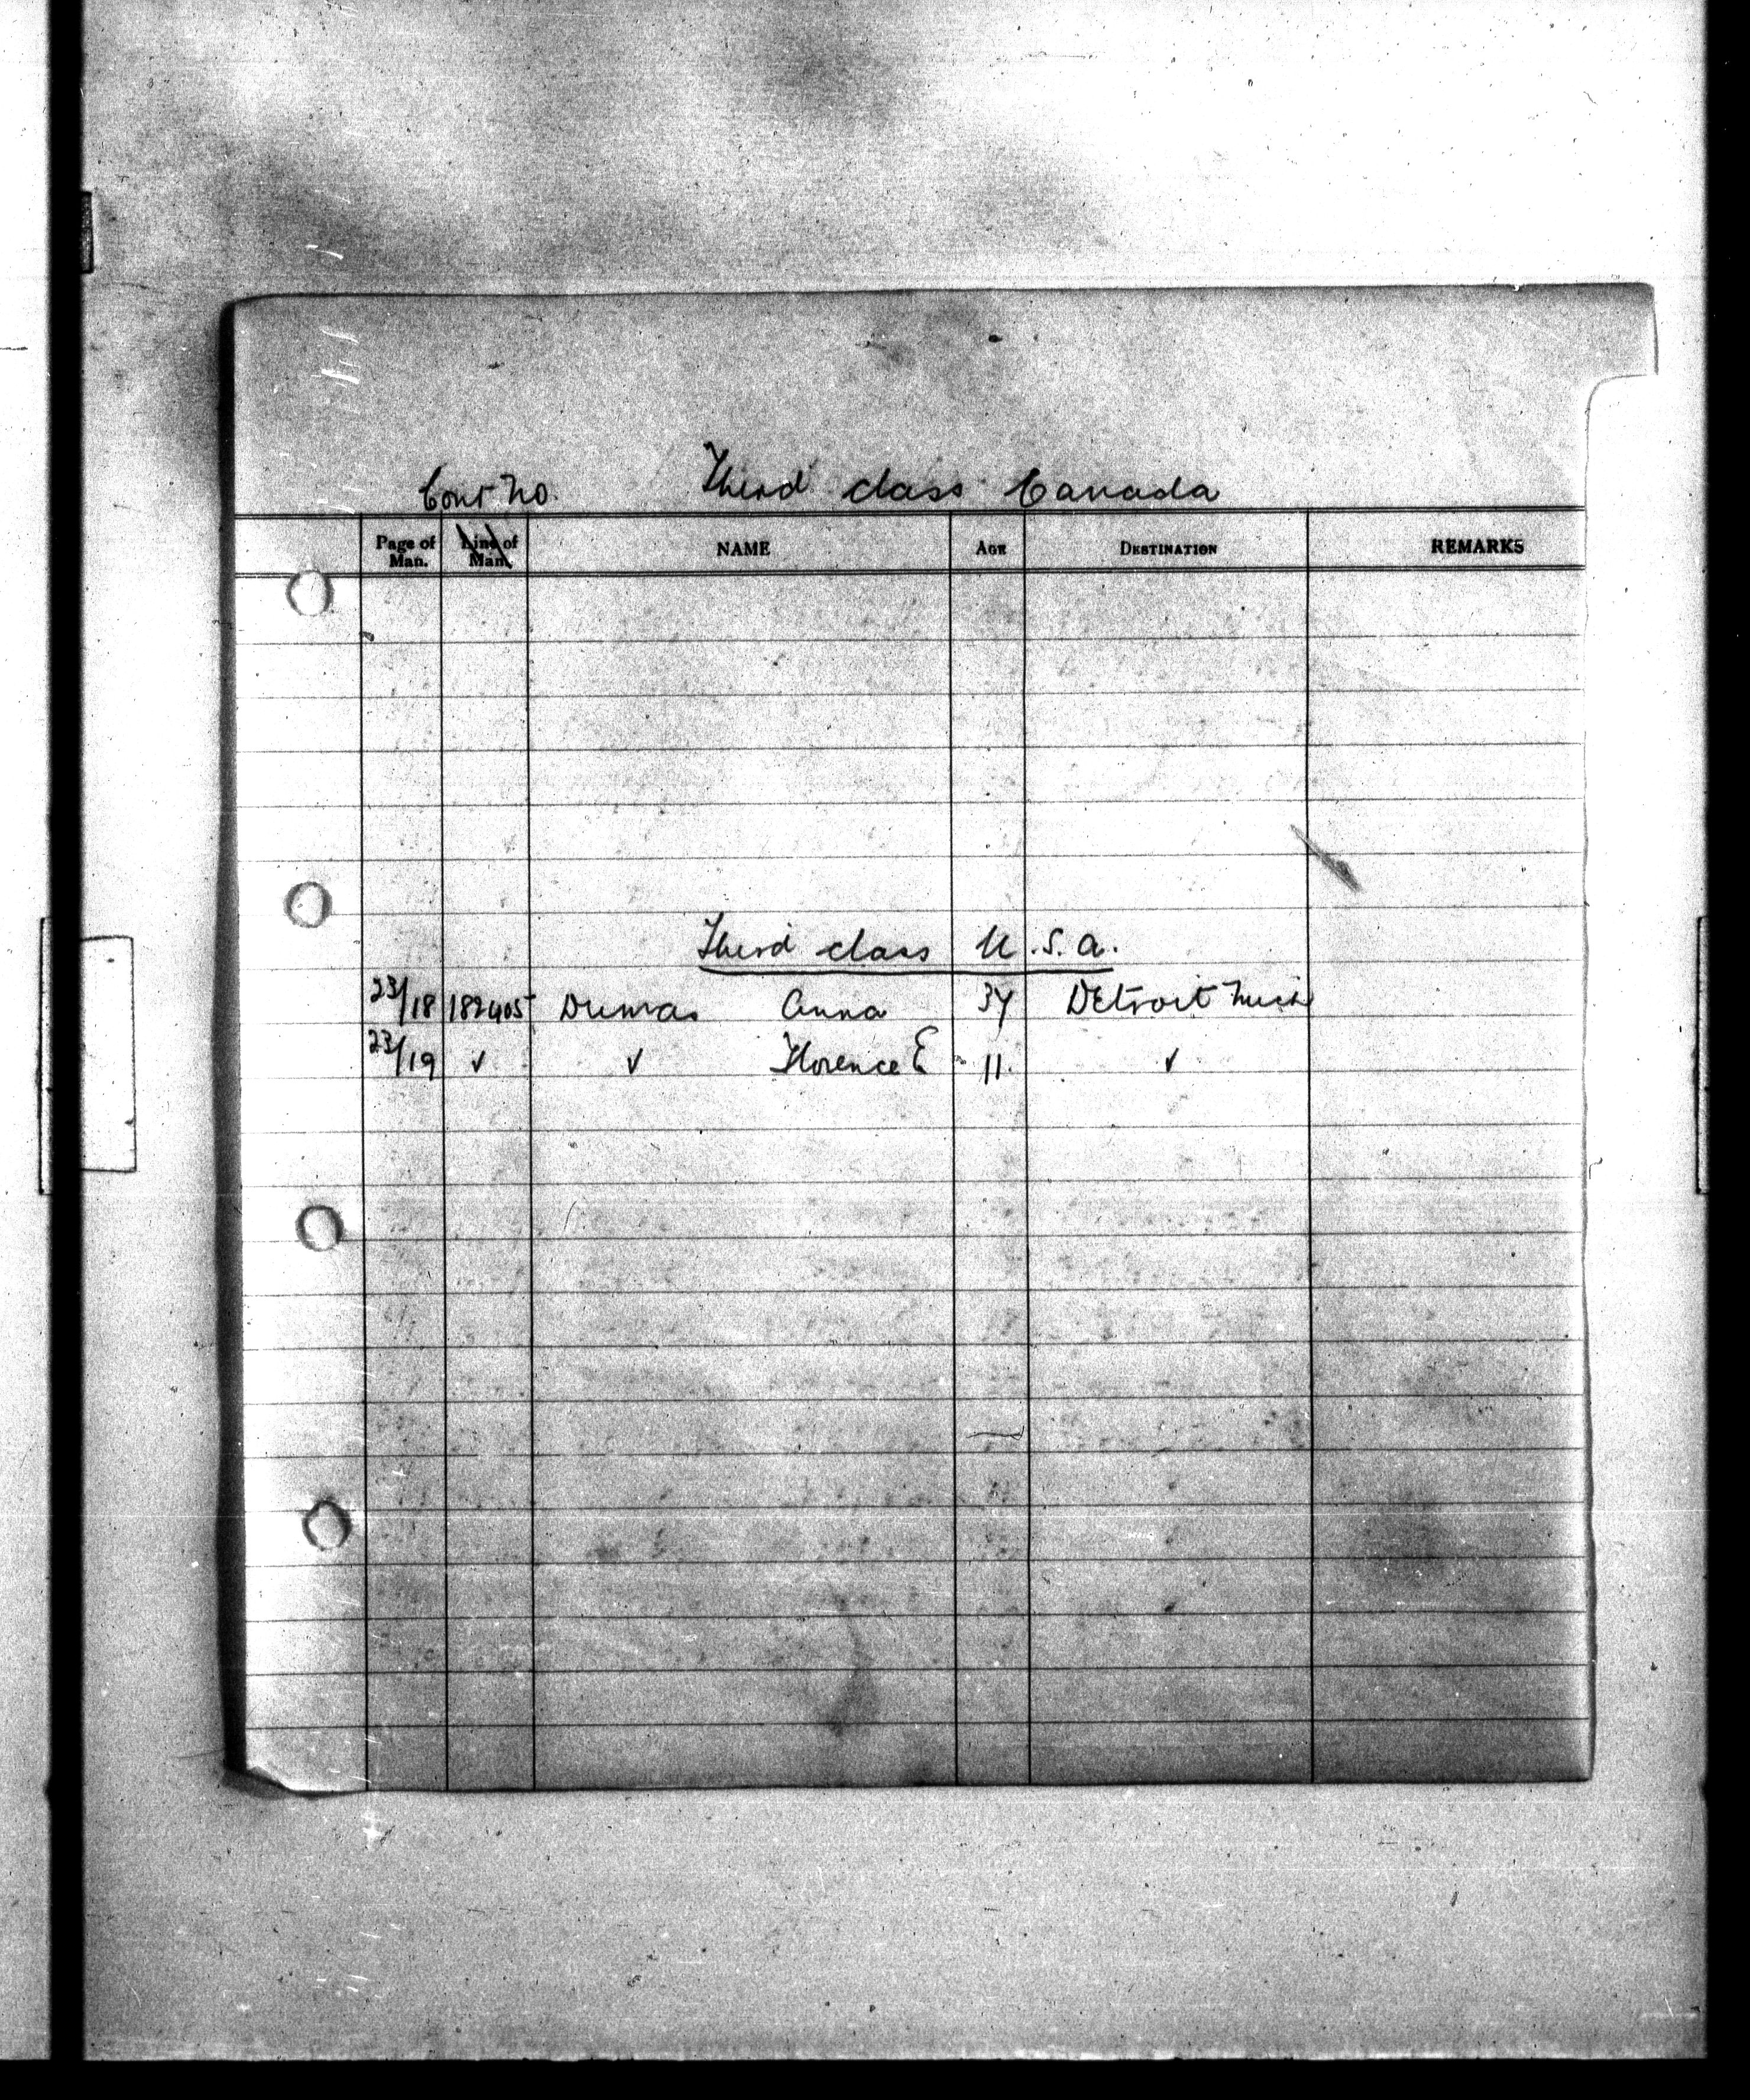 Cont No. Third class Canada
Page of Man. Line of Man. NAME AGE DESTINATION REMARKS
Third class U.S.A.
23/18 182405 Dumas Anna 37 Detroit Mich
23/19 ✓ ✓ Florence E 11. ✓